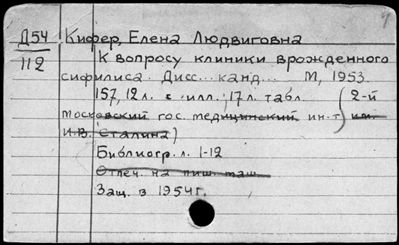 Д54 Кифер, Елена Людвиговна
112 К вопросу клиники врожденного
сифилиса. Дисс... канд... М, 1953.
157, 12 л. с илл., 17 л. табл. (2-й
Московский гос. медицинский ин-т им.
И.В. Сталина)
Библиогр. л. 1-12
Отпеч. на пиш. маш.
Защ. в 1954 г.